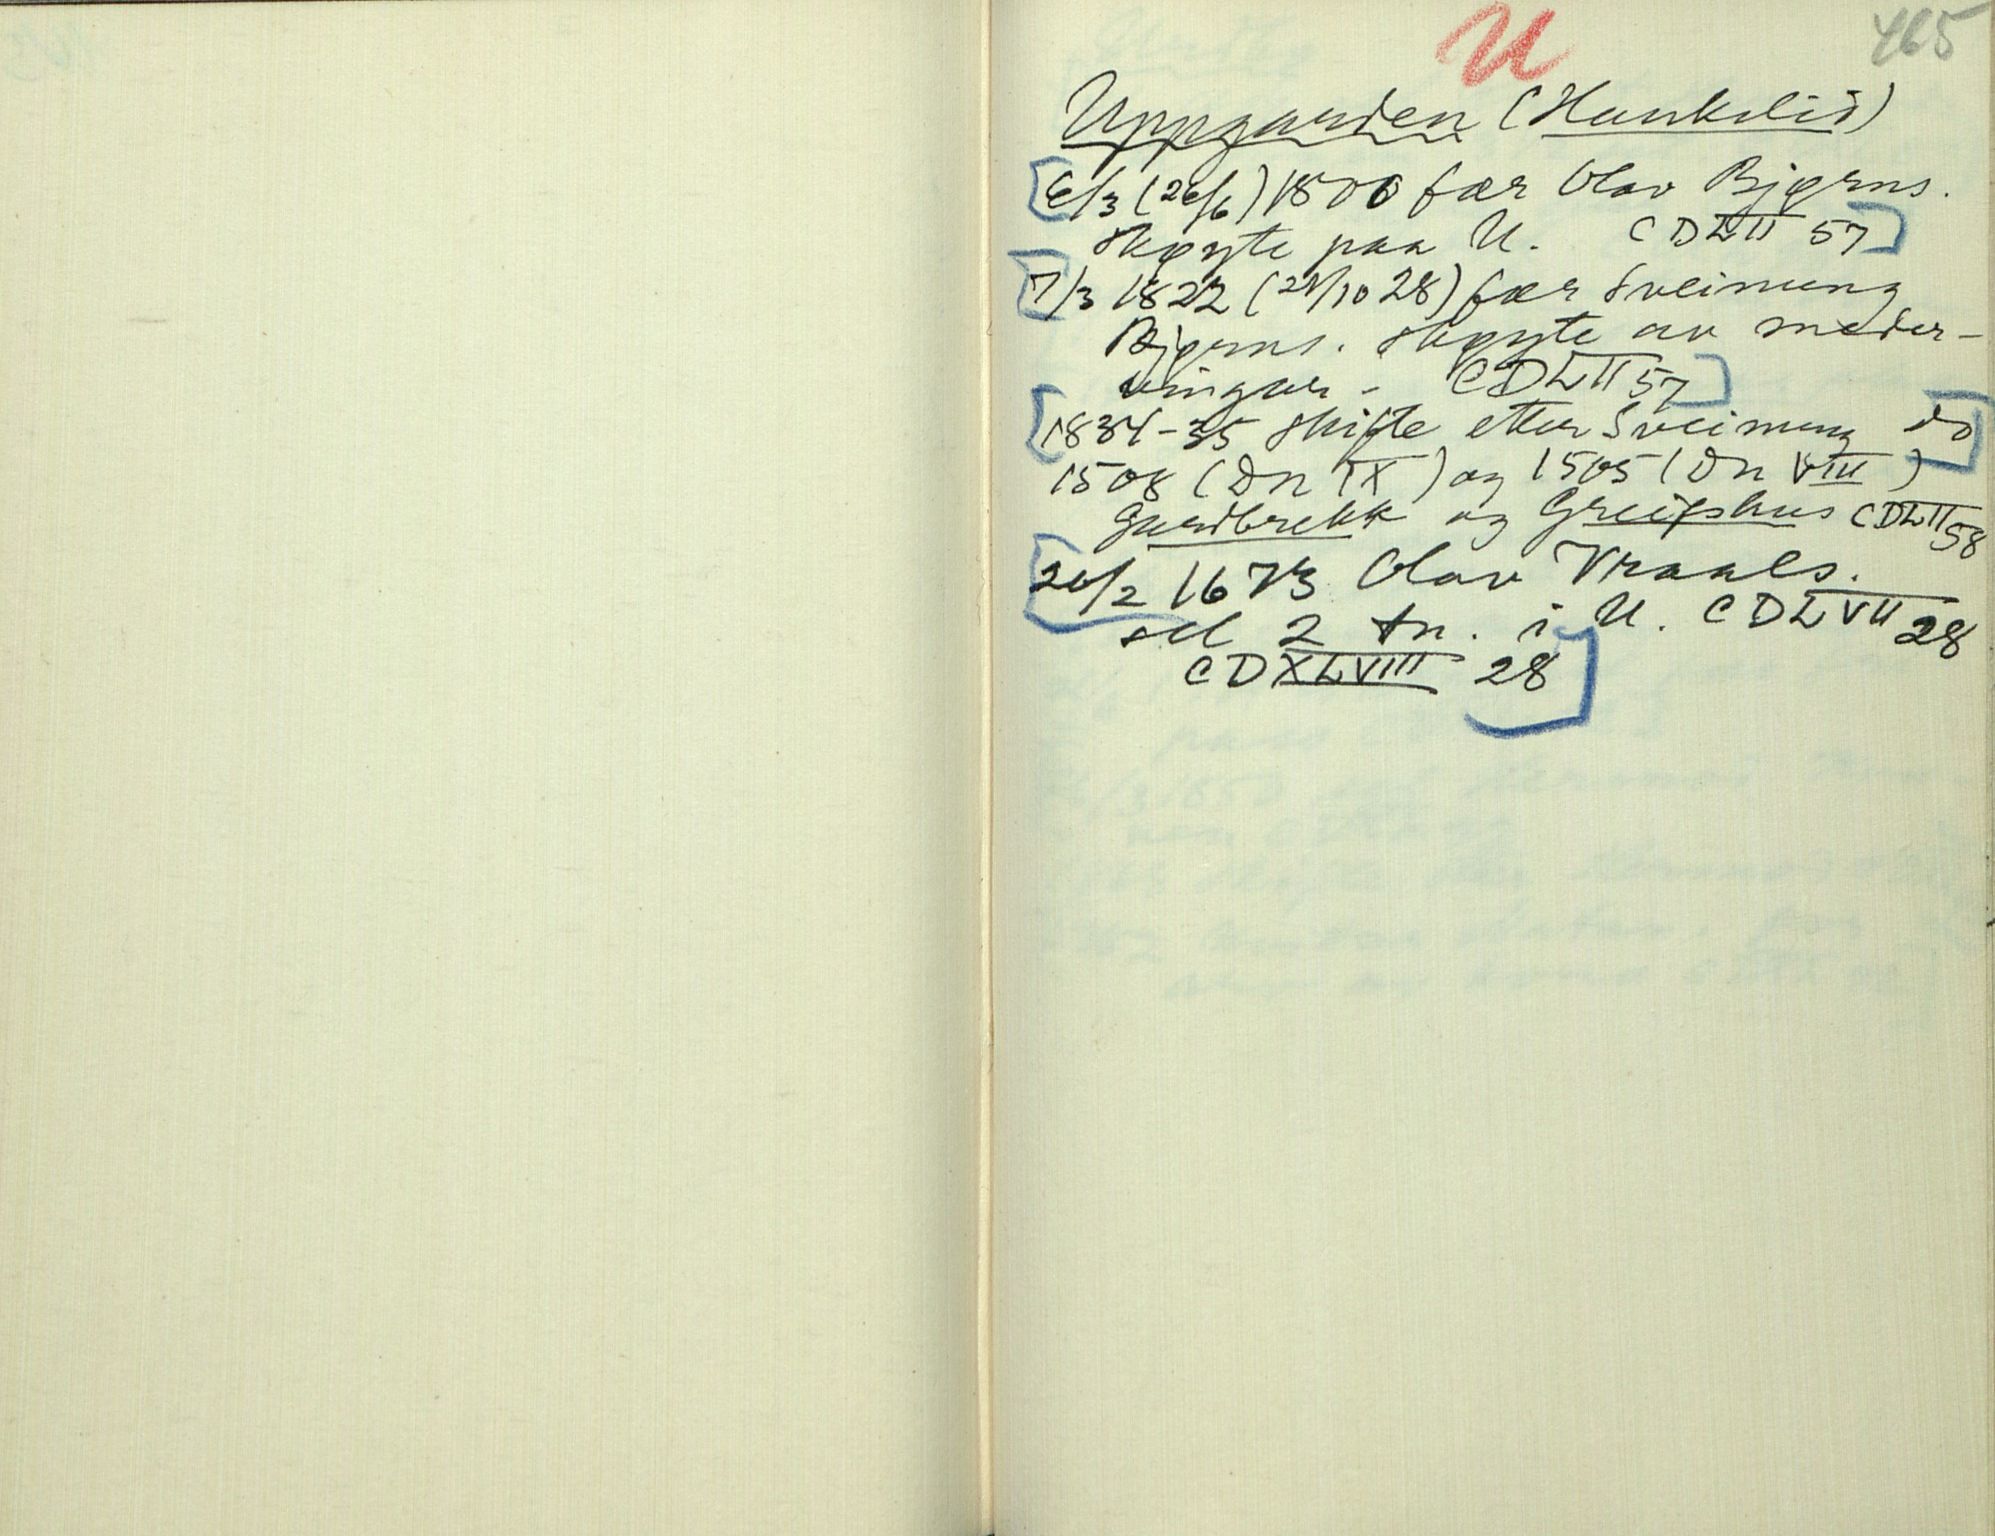 U 465
Uppgarden (Haukelid)
[6/3 (26/6) 1800 fær Olav Bjørns.
skøyte paa U. CDLII 57]
[7/3 1822 (28/10 28) fær Sveinung
Bjørns. skøyte av meder-
vingar. CDLII 57]
[1834-35 skifte etter Sveinung do]
1508 (Dn IX) og 1505 (Dn VIII)
Gardbrekk og Greipshus CDLII 58
[26/2 1673 Olav Vraals.
sel 2 tn. i U. CDLVII 28
CDXLVIII 28]